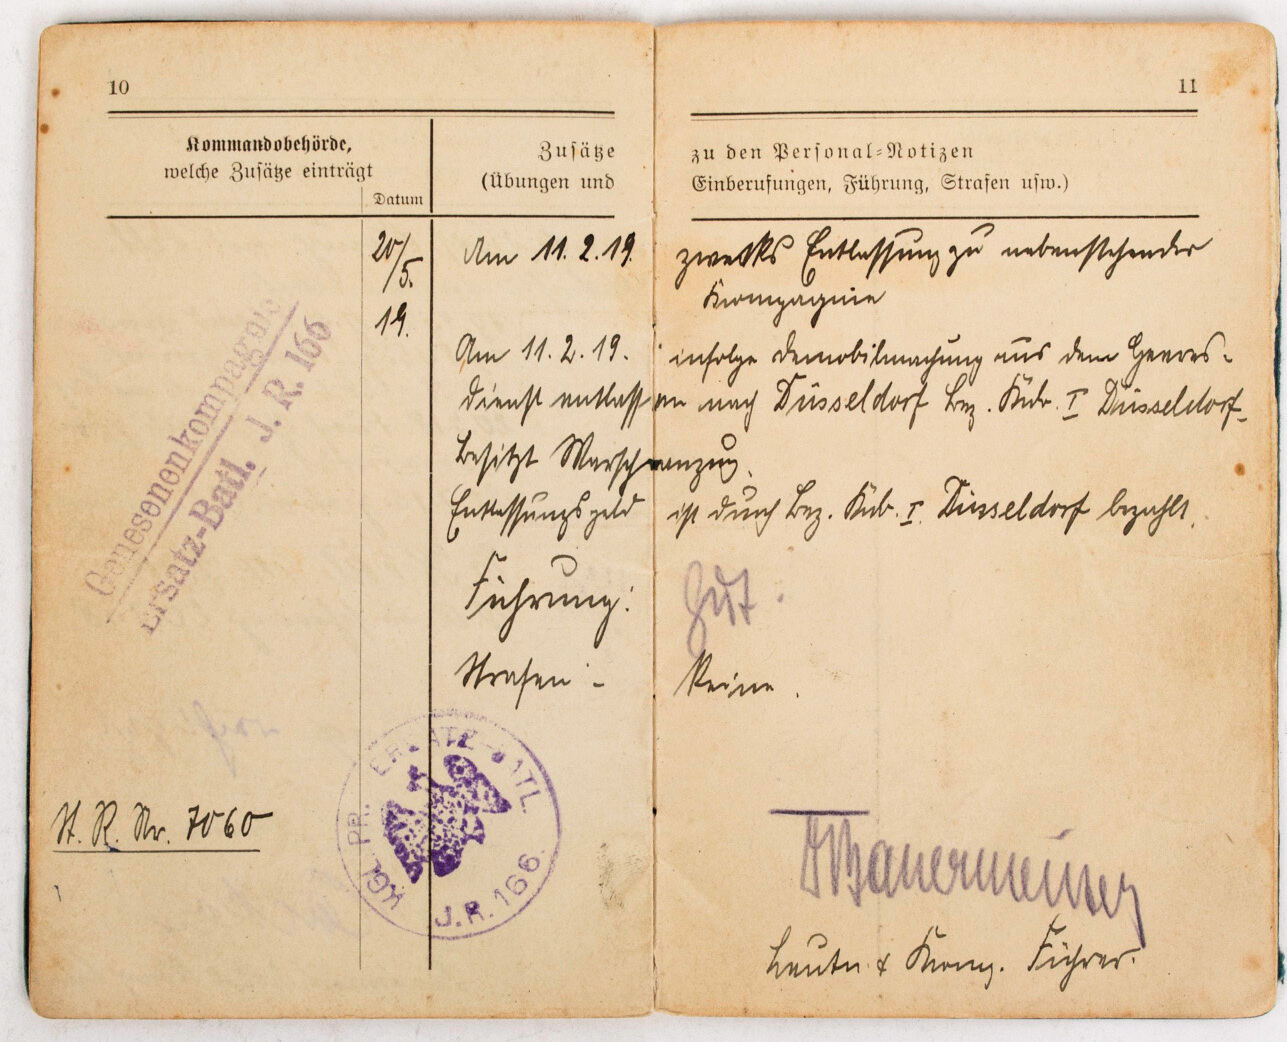 10
11
Kommandobehörde,
welche Zusätze einträgt
Datum
Zusätze zu den Personal-Notizen
(Übungen und Einberufungen, Führung, Strafen usw.)
20/5. 19.
Am 11.2.19. zwecks Entlassung zu nebenstehender
Kompagnie
Am 11.2.19. infolge Demobilmachung aus dem Heeres-
dienst entlassen nach Düsseldorf Bez. Kdo. I Düsseldorf.
Besitzt Marschanzug.
Entlassungsgeld ist durch Bez. Kdo. I. Düsseldorf bezahlt.
Führung: Gut.
Strafen:- Keine.
Genesenenkompagnie
Ersatz-Batl. J. R. 166
KGL. PR. ERSATZ-BATL.
J.R. 166.
St. R. Nr. 7060
Bauermeister
Leutn. & Komp. Führer.